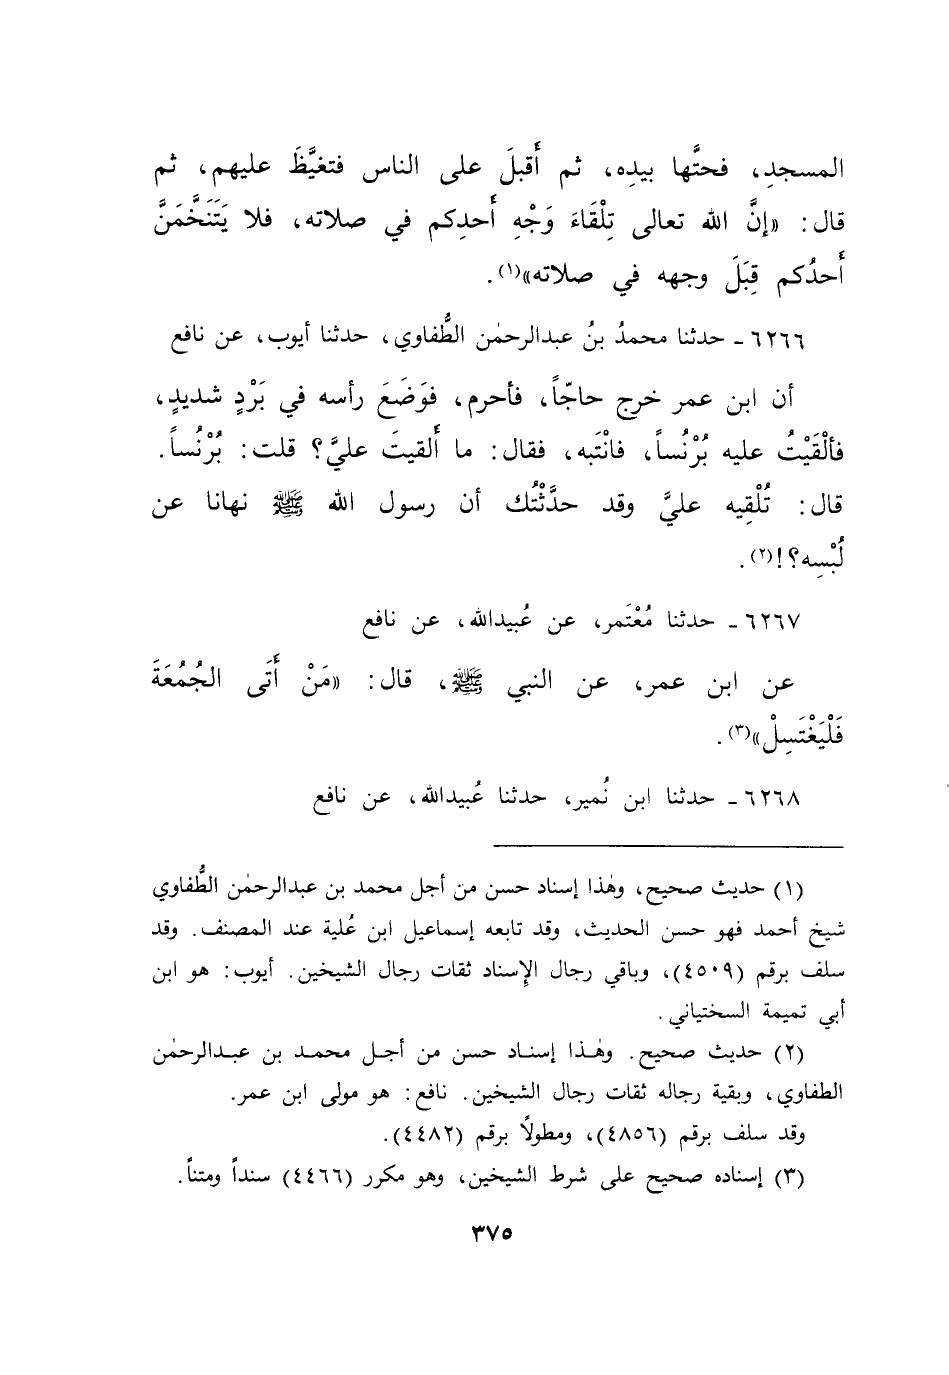 المسجدِ، فحتَّها بيدِه، ثم أَقبلَ على الناس فتغيَّظَ عليهم، ثم
قال: «إنَّ الله تعالى تِلْقَاءَ وَجْهِ أَحدِكم في صلاته، فلا يَتَنَخَّمَنَّ
أَحدُكم قِبَلَ وجهه في صلاته»(١).
٦٢٦٦ ـ حدثنا محمدُ بنُ عبدالرحمٰن الطُّفاوي، حدثنا أيوب، عن نافع
أن ابن عمر خرج حاجّاً، فأحرم، فوَضَعَ رأسه في بَرْدٍ شديدٍ،
فألْقَيْتُ عليه بُرْنُساً، فانْتَبه، فقال: ما أَلقيتَ عليَّ؟ قلت: بُرْنُساً.
قال: تُلْقِيه عليَّ وقد حدَّثْتُك أن رسول الله ﷺ نهانا عن
لُبْسِه؟!(٢).
٦٢٦٧ ـ حدثنا مُعْتَمر، عن عُبيدالله، عن نافع
عن ابن عمر، عن النبي ﷺ، قال: «مَنْ أَتَى الجُمُعَةَ
فَلْيَغْتَسِلْ»(٣).
٦٢٦٨ ـ حدثنا ابن نُمير، حدثنا عُبيدالله، عن نافع
(١) حديث صحيح، وهٰذا إسناد حسن من أجل محمد بن عبدالرحمٰن الطُّفاوي
شيخ أحمد فهو حسن الحديث، وقد تابعه إسماعيل ابن عُلية عند المصنف. وقد
سلف برقم (٤٥٠٩)، وباقي رجال الإسناد ثقات رجال الشيخين. أيوب: هو ابن
أبي تميمة السختياني.
(٢) حديث صحيح. وهٰذا إسناد حسن من أجل محمد بن عبدالرحمٰن
الطفاوي، وبقية رجاله ثقات رجال الشيخين. نافع: هو مولى ابن عمر.
وقد سلف برقم (٤٨٥٦)، ومطولًا برقم (٤٤٨٢).
(٣) إسناده صحيح على شرط الشيخين، وهو مكرر (٤٤٦٦) سنداً ومتناً.
٣٧٥